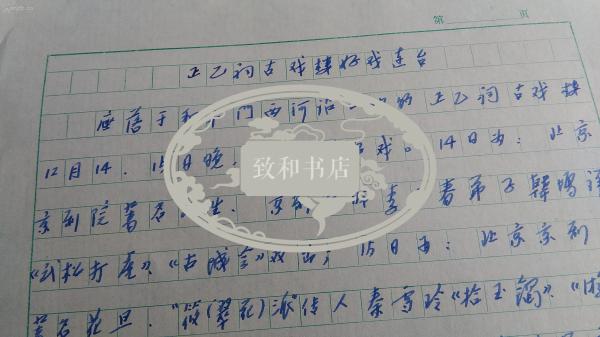 第 页
正乙祠古戏楼好戏连台
座落于和平门西河沿 的正乙祠古戏楼
12月14、15日晚 戏。14日为:北京
京剧院著名 生、京 李 春弟子韩鸣
《武松打店》、《古城会》双出;15日为:北京京剧
著名花旦、"筱(翠花)派"传人秦雪玲《拾玉镯》、
致和书店